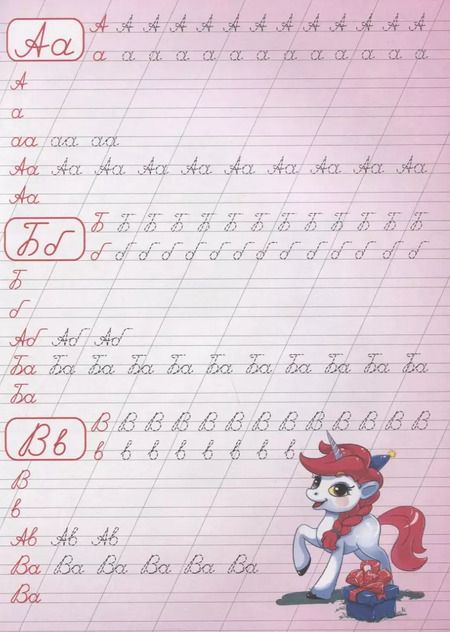 Аа
А А А А А А А А А А А А А
а а а а а а а а а а а а а
А
а
аа аа аа
Аа Аа Аа Аа Аа Аа Аа Аа Аа Аа
Аа
Бб
Б Б Б Б Б Б Б Б Б Б Б Б Б
б б б б б б б б б б б б б
Б
б
Аб Аб Аб
Ба Ба Ба Ба Ба Ба Ба Ба Ба Ба Ба
Ба
Вв
В В В В В В В В В В В В В
в в в в в в в в
В
в
Ав Ав Ав
Ва Ва Ва Ва Ва Ва
Ва